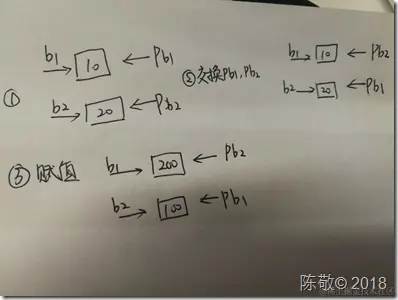 ①
b1 → 10 ← Pb1
b2 → 20 ← Pb2
② 交换Pb1,Pb2
b1 → 10 ← Pb2
b2 → 20 ← Pb1
③ 赋值
b1 → 200 ← Pb2
b2 → 100 ← Pb1
陈敬© 2018